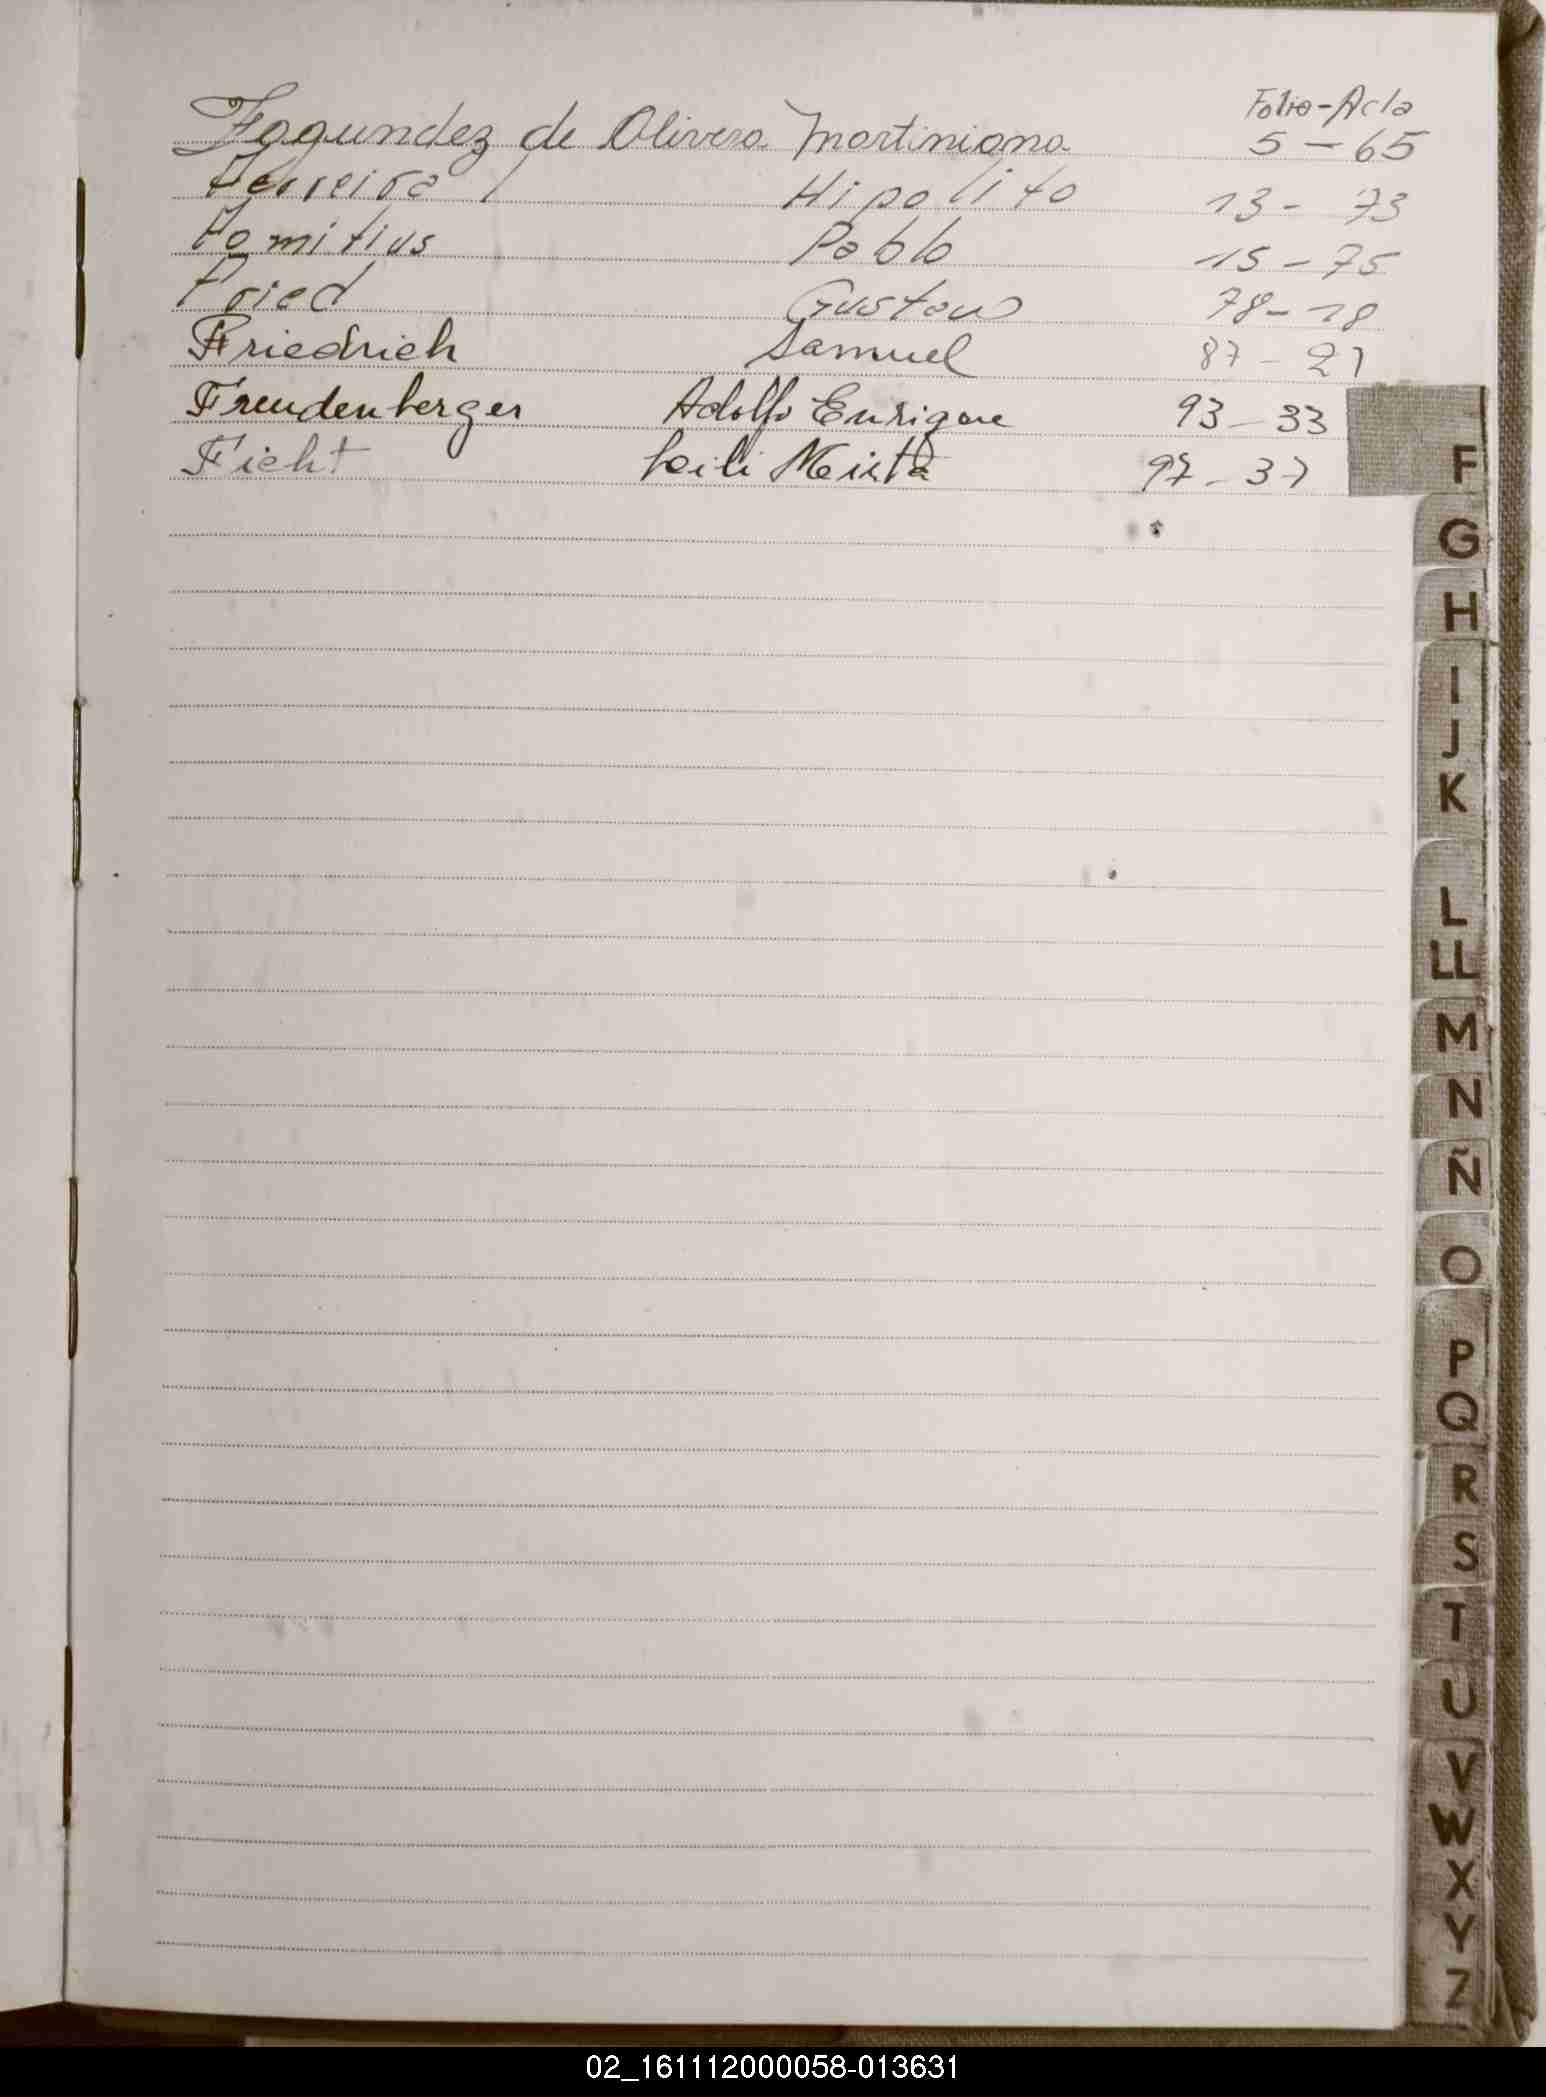 Folio-Acta
Fagundez de Olivera Martiniana 5 - 65
Ferreira Hipolito 13 - 73
Pablo 15 - 75
Fried Gustav 78 - 18
Friedrich Samuel 87 - 27
Freudenberger Adolfo Enrique 93 - 33
Ficht 97 - 37
F
G
H
I
J
K
L
LL
M
N
Ñ
O
P
Q
R
S
T
U
V
W
X
Y
Z
02_161112000058-013631